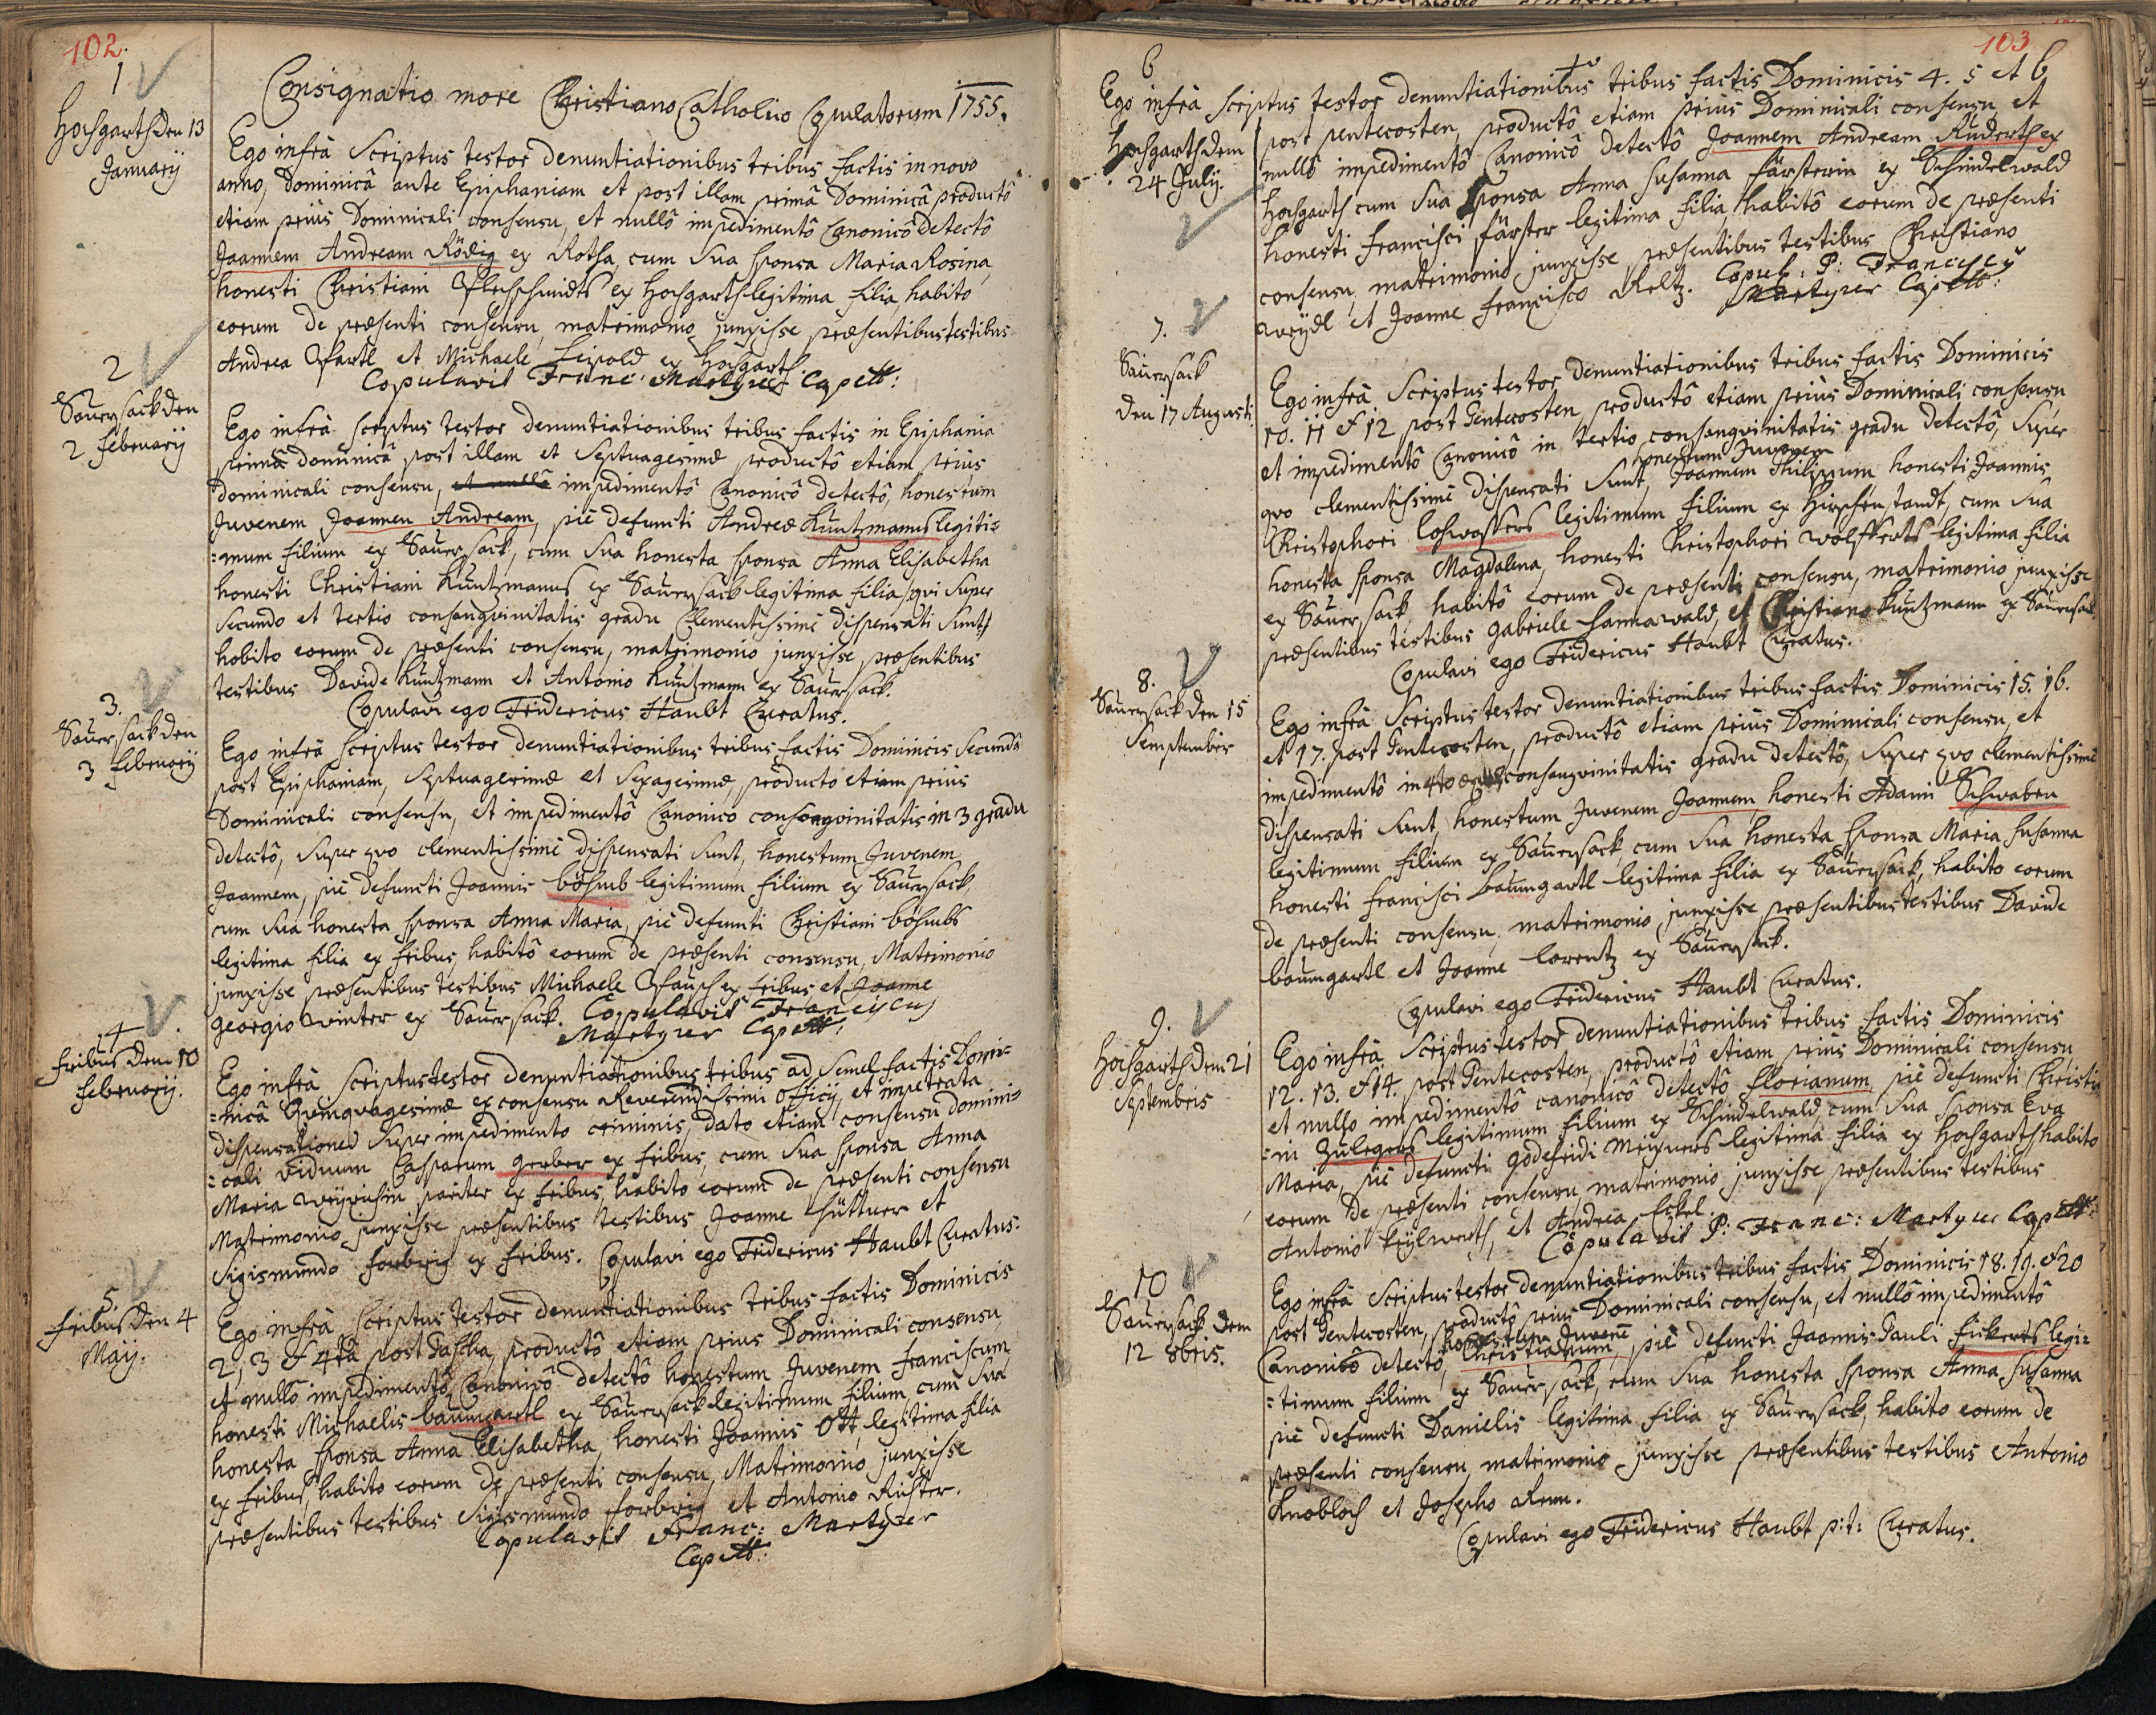 102.
Consignatio more Christiano Catholico Copulatorum 1755.
1
Hochgarth den 13
Januarij
Ego infrà Scriptus testor denuntiationibus tribus factis in novo
anno, Dominicâ ante Epiphaniam et post illam primâ Dominicâ productô
etiam priùs Dominicali consensu, et nullô impedimentô Canonicô detectô
Joannem Andream Rödig ex Rotha, cum sua sponsa Maria Rosina
honesti Christiani
ex Hochgarth legitima filia, habito
eorum de præsenti consensu, matrimonio junxisse præsentibus testibus
Andrea
et Michaele Leipold ex Hochgarth.
Copulavit Franc: Martyrer Capell:
2
Sauersack den
2 Februarij
Ego infrà scriptus testor denuntiationibus tribus factis in Epiphania
primâ dominicâ post illam et Septuagesimæ productô etiam priùs
dominicali consensu, et nullô impedimentô Canonicô detectô, honestum
Juvenem Joannem Andream, piè defuncti Andreæ Kuntzmanns legiti=
=mum filium ex Sauersack, cum sua honesta sponsa Anna Elisabetha
honesti Christiani Kuntzmanns ex Sauersack legitima filia, qvi super
secundo et tertio consangvinitatis gradu Clementissimè dispensati sunt,
habito eorum de præsenti consensu, matrimonio junxisse præsentibus
testibus Davide Kuntzmann et Antonio Kuntzmann ex Sauersack.
Copulavi ego Fridericus Haubt Curatus.
3.
Sauersack den
3 Februarij
Ego infrà scriptus testor denuntiationibus tribus factis Dominicis secundâ
post Epiphaniam, Septuagesimæ et Sexagesimæ, producto etiam priùs
Dominicali consensu, et impedimentô Canonico consangvinitatis in 3 gradu
detectô, super qvo clementissimè dispensati sunt, honestum Juvenem
Joannem, piè defuncti Joannis böhmb legitimum filium ex Sauersack,
cum sua honesta sponsa Anna Maria, piè defuncti Christiani böhmbs
legitima filia ex fribus, habitô eorum de præsenti consensu, Matrimonio
junxisse præsentibus testibus Michaele
ex fribus, et Joanne
Georgio Winter ex Sauersack. Copulavit Franciscus
Martyrer Capell:
4
fribus dem 10
Februarij.
Ego infrà Scriptus testor denuntiationibus tribus ad semel factis Domi=
=nicâ Qvinqvagesimæ ex consensu Reverendissimi officij, et impetrata
dispensatione super impedimento criminis, dato etiam consensu domini=
=cali viduum Casparum Gerber ex fribus, cum sua sponsa Anna
Maria
pariter ex fribus, habito eorum de præsenti consensu
Matrimonio junxisse præsentibus testibus Joanne Hüttner et
Sigismundo forbrig ex fribus. Copulavi ego Fridericus Haubt Curatus.
5.
fribus den 4
Maij.
Ego infrà Scriptus testor denuntiationibus tribus factis Dominicis
2, 3 et 4tâ post Pascha, productô etiam priùs Dominicali consensu
et nullô impedimentô Canonicô detectô honestum Juvenem Franciscum
honesti Michaelis baumgartl ex Sauersack legitimum filium cum sua
honesta sponsa Anna Elisabetha, honesti Joannis Ott, legitima filia
ex fribus, habito eorum de præsenti consensu, Matrimonio junxisse
præsentibus testibus Sigismundo forbrig et Antonio Rüster.
Copulavit Franc: Martyrer
Capell:
103
6
Hochgarth dem
24 July.
Ego infrà scriptus testor denuntiationibus tribus factis Dominicis 4. 5 et 6
post pentecosten, productô etiam priùs Dominicali consensu et
nullô impedimentô Canonicô detectô Joannem Andream Rüderth ex
Hochgarth cum sua sponsa Anna Susanna färsterin ex Schindelwald
honesti Francisci färster legitima filia, habitô eorum de præsenti
consensu, matrimonio junxisse præsentibus testibus Christiano
et Joanne Francisco
Copul: P: Franciscy
Martyrer Capell:
7.
Sauersack
den 17 Augusti.
Ego infrà Scriptus testor denuntiationibus tribus factis Dominicis
10. 11 et 12 post Pentecosten, productô etiam priùs Dominicali consensu
et impedimentô Canonicô in tertio consangvinitatis gradu detectô, super
honestum Juvenem
qvo clementissimè dispensati sunt, Joannem Philippum, honesti Joannis
Christophori loswassers legitimum filium ex Hirschenstandt, cum sua
honesta sponsa Magdalena, honesti Christophori Wolfferts legitima filia
ex Sauersack, habitô eorum de præsenti consensu, matrimonio junxisse
præsentibus testibus Gabriele Hannawald, et Christiano Kuntzmann ex Sauersack.
Copulavi ego Fridericus Haubt Curatus.
8.
Sauersack den 15
Semptembris
Ego infrà Scriptus testor denuntiationibus tribus factis Dominicis 15. 16.
et 17. post Pentecosten, productô etiam priùs Dominicali consensu, et
impedimentô in 4to
consangvinitatis gradu detectô, super qvo clementissimè
dispensati sunt, honestum Juvenem Joannem, honesti Adami Schwaben
legitimum filium ex Sauersack, cum sua honesta sponsa Maria Susanna
honesti Francisci baumgartl legitima filia ex Sauersack, habito eorum
de præsenti consensu, matrimonio junxisse præsentibus testibus Davide
baumgartl et Joanne Lorentz ex Sauersack.
Copulavi ego Fridericus Haubt Curatus.
9.
Hochgarth dem 21
Septembris
Ego infrà Scriptus testor denuntiationibus tribus factis Dominicis
12. 13. et 14. post Pentecosten, productô etiam priùs Dominicali consensu,
et nullo impedimentô canonicô detectô Florianum, piè defuncti Christia
=ni Zulegers legitimum filium ex Schindelwald, cum sua sponsa Eva
Maria, piè defuncti Godefridi Meixners legitima filia ex Hochgarth, habito
eorum de præsenti consensu, matrimonio junxisse præsentibus testibus
Antonio
et Andrea Eckel.
Copulavit P: Franc: Martyrer Capell:
10
Sauersack dem
12 8bris.
Ego infrà Scriptus testor denuntiationibus tribus factis Dominicis 18. 19. et 20
post Pentecosten, productô priùs Dominicali consensu, et nullô impedimentô
honestum Juvenem
Canonicô detectô, Christianum, piè defuncti Joannis Pauli fickerts legi=
=timum filium ex Sauersack, cum sua honesta sponsa Anna Susanna
piè defuncti Danielis legitima filia ex Sauersack, habito eorum de
præsenti consensu, matrimonio junxisse præsentibus testibus Antonio
Knobloch et Josepho
Copulavi ego Fridericus Haubt p:t: Curatus.